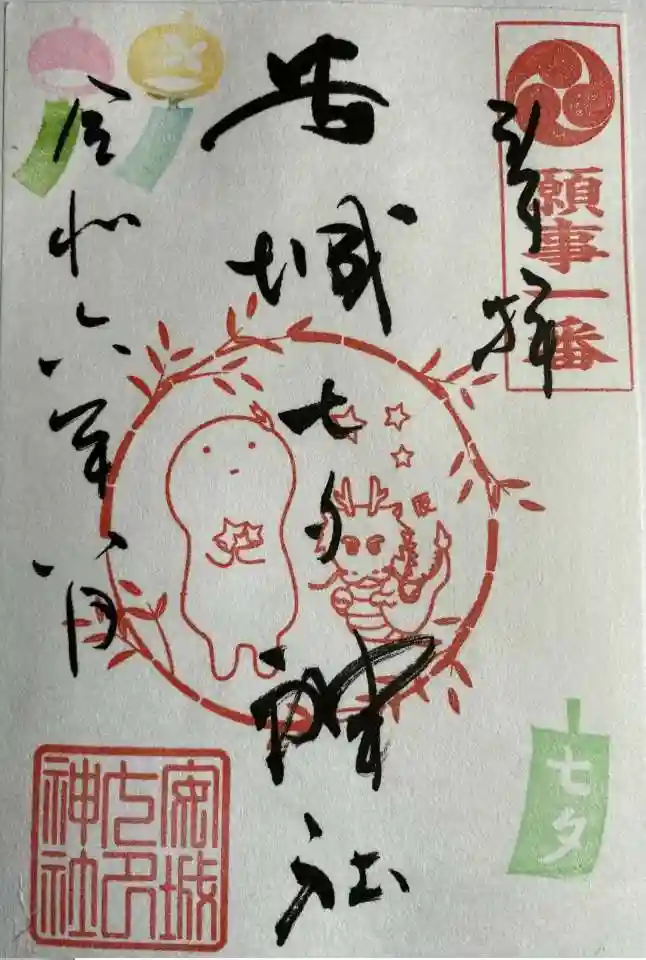 奉拝
願事一番
安城七夕神社
辰
令和六年八月
七夕
安城
七夕
神社